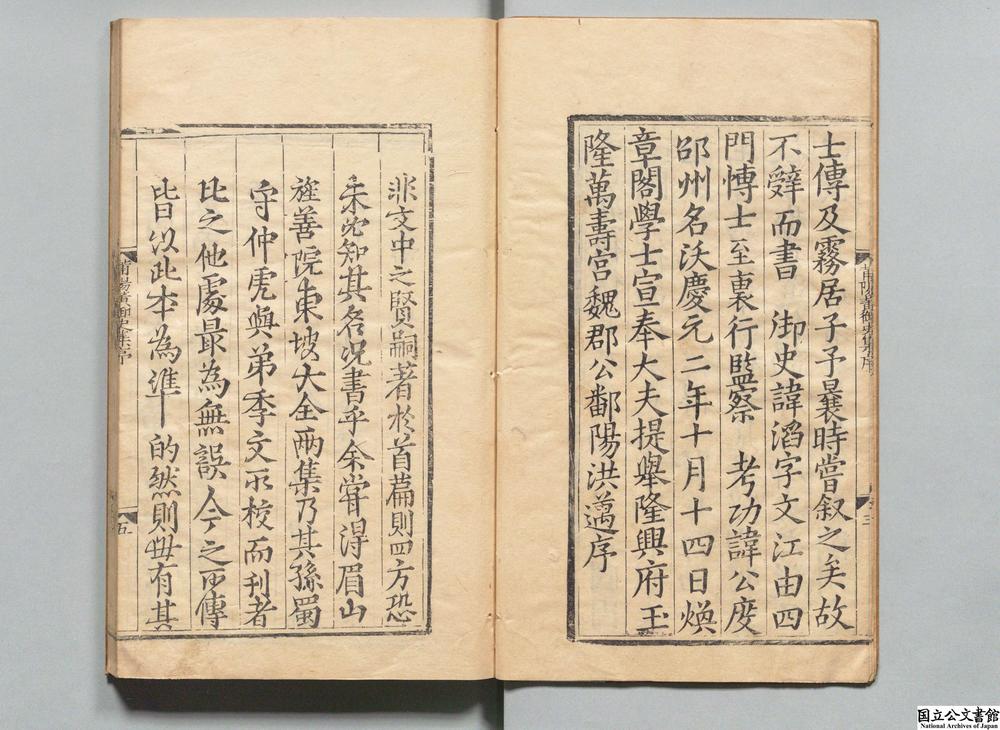 士傳及霧居子予曩時嘗叙之矣故
不辤而書　御史諱滔字文江由四
門愽士至裏行監察　考功諱公度
邵州名沃慶元二年十月十四日煥
章閣學士宣奉大夫提舉隆興府玉
隆萬壽宮魏郡公鄱陽洪邁序
三
非文中之賢嗣著於首篇則四方恐
未必知其名况書乎余甞得眉山
旌善院東坡大全兩集乃其孫蜀
守仲虎與弟季文所校而刊者
比之他處最為無誤今之所傳
皆以此本為準的然則毋有其
莆陽黃御史集序
五
国立公文書館
National Archives of Japan